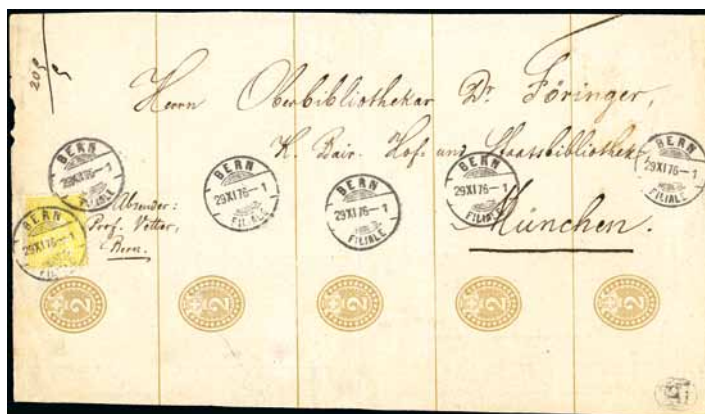 20 g
Herrn Oberbibliothekar Dr. Föringer,
K. Bair. Hof- und Staatsbibliothek
München.
Absender:
Prof. Vetter,
Bern.
BERN
29XI76–1
FILIALE
BERN
29XI76–1
FILIALE
BERN
29XI76–1
FILIALE
BERN
29XI76–1
FILIALE
BERN
29XI76–1
FILIALE
BERN
29XI76–1
FILIALE
2
2
2
2
2